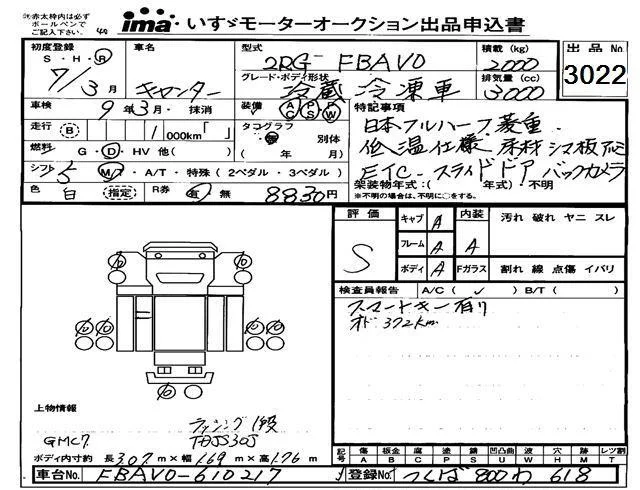 ㊟赤太枠内は必ず
ボールペンで
ご記入下さい。
ima いすゞモーターオークション出品申込書
初度登録 S・H・R 7/3月
車名 キャンター
型式 2RG-FBAV0
積載(kg) 2000
出品No 3022
グレード・ボディ形状 冷蔵冷凍車
排気量(cc) 3000
車検 9年3月・抹消
装備 AC PS PW
特記事項
走行 B /000km「 」
タコグラフ 無 別体 ( 年 月)
日本フルハーフ 菱重
燃料 G・D・HV 他( )
低温仕様 床材シマ板アルミ
シフト 5 M/T・A/T・特殊(2ペダル・3ペダル)
ETC スライドドア バックカメラ
架装物年式:( 年式)・不明
※不明の場合は、不明に○をする。
色 白 (指定) R券 有 無 8830円
評価 S
キャブ A 内装 A 汚れ 破れ ヤニ スレ
フレーム A
ボディ A Fガラス 割れ 線 点傷 イバリ
検査員報告 A/C(✓) B/T( )
スマートキー有り
オド 372km
10 10
10 10 10 10
上物情報
ラッシング 1段
GMC7 TDJS30J
ボディ内寸約 長 3.07m×幅 1.69m×高 1.76m
記号 傷 A 板金 B 腐 C 塗 P 錆 S 凹凸曲 U 波 W 穴 H 跡 M レツ割 T
車台No. FBAV0-610217
登録No. つくば800わ618